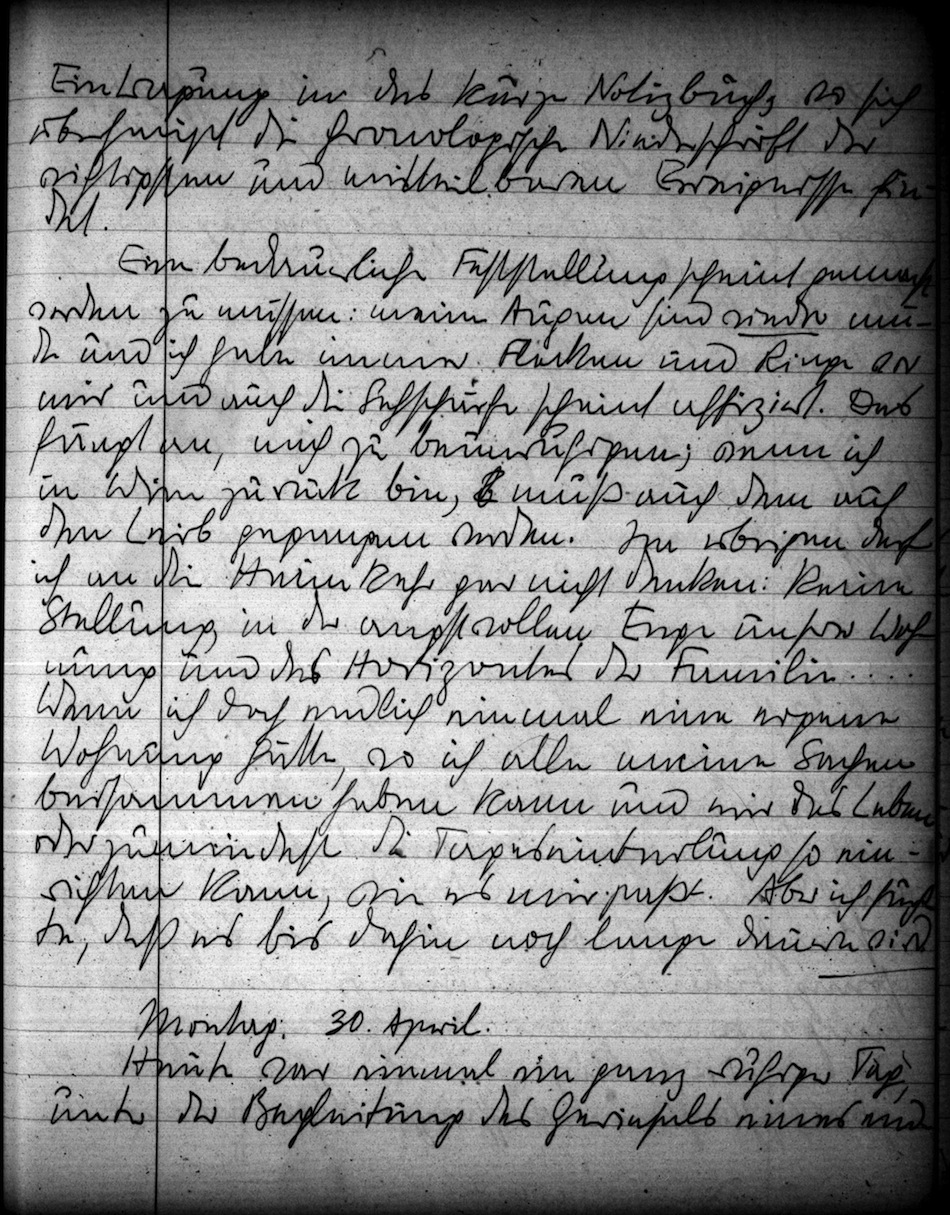 Eintragung in das kurze Notizbuch, wo sich
überhaupt die chronologische Niederschrift der
wichtigsten und mitteilbaren Ereignisse fin-
det.
Eine bedauerliche Feststellung scheint gemacht
werden zu müssen: meine Augen sind wieder mü-
de und ich habe immer Flocken und Ringe vor
mir und auch die Sehschärfe scheint affiziert. Das
fängt an, mich zu beunruhigen; wenn ich
in Wien zurück bin, muß auch dem auf
den Leib gegangen werden. Im übrigen darf
ich an die Heimkehr gar nicht denken: Keine
Stellung, in der angstvollen Enge unserer Woh-
nung und des Horizontes der Familie....
Wenn ich doch endlich einmal eine eigene
Wohnung hätte, wo ich alle meine Sachen
beisammen haben kann und mir das Leben
oder zumindest die Tageseinteilung so ein-
richten kann, wie es mir paßt. Aber ich fürch-
te, daß es bis dahin noch lange dauern wird
Montag. 30. April.
Heute war einmal ein ganz ruhiger Tag,
unter der Begleitung des Geriesels eines